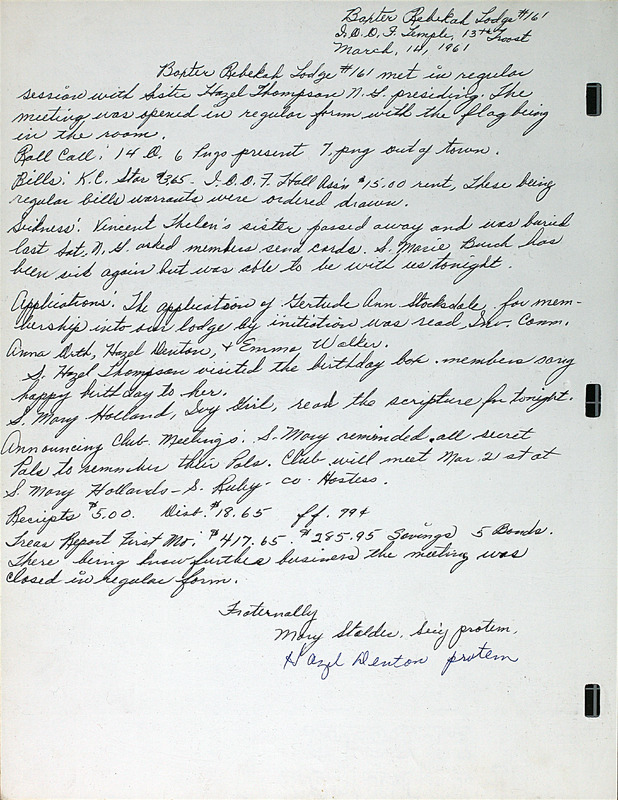 Baxter Rebekah Lodge #161
I.O.O.F. Temple, 13th & Troost
March, 14, 1961
Baxter Rebekah Lodge #161 met in regular
session with Sistr Hazel Thompson N.G. presiding. The
meeting was opened in regular form with the flag being
in the room.
Roll Call; 14 O. 6 Pngs present 7. png out of town.
Bills; K.C. Star $3.65. I.O.O.F. Hall Ass'n $15.00 rent, These being
regular bills warrants were ordered drawn.
Sickness'. Vincent Thelen's sister passed away and was buried
last Sat, N.G. asked members send cards. S. Marie Burch has
been sick again but was able to be with us tonight.
Applications'. The application of Gertude Ann Stocksdale, for mem-
bership into our lodge by initiation was read Inv. Comm.
Anna Orth, Hazel Denton, & Emma Walker.
S. Hazel Thompson visited the birthday box. members sang
happy birthday to her.
S. Mary Holland, Ivy Girl, read the scripture for tonight.
Announcing Club Meetings'. S. Mary reminded all secret
Pals to remmber their Pals. Club will meet Mar. 21 st at
S. Mary Hollands - S. Ruby - co-Hostess.
Receipts $5.00. Disb. $18.65 ff. 79¢
Treas Report First Mo.; $417.65. $285.95 Savings 5 Bonds.
There being know further business the meeting was
closed in regular form.
Fraternally
Mary Stalder, Sec'y protem,
Hazel Denton protem